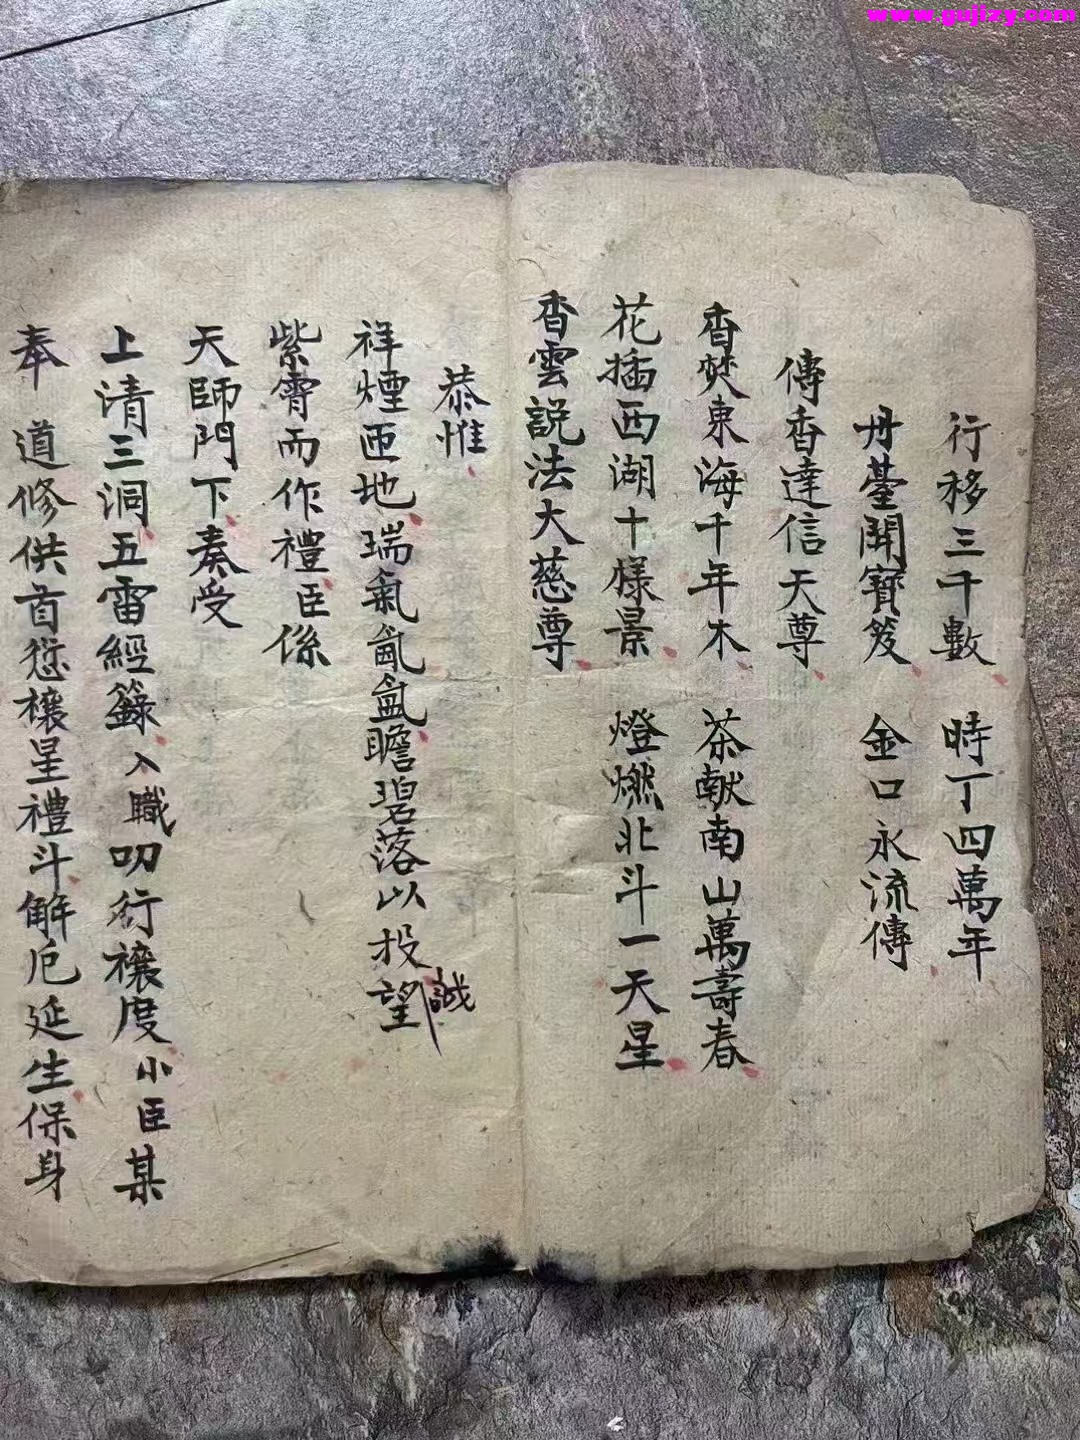 www.gujizy.com
行移三千數 時丁四萬年
丹臺開寶笈 金口永流傳
傳香達信天尊
香焚東海千年木 茶献南山萬壽春
花插西湖十樣景 燈燃北斗一天星
香雲説法大慈尊
恭惟
祥煙匝地瑞氣氤氳瞻碧落以投誠望
紫霄而作禮臣係
天師門下奏受
上清三洞五雷經籙入職叨行禳度小臣某
奉 道修供首愆禳星禮斗解厄延生保身